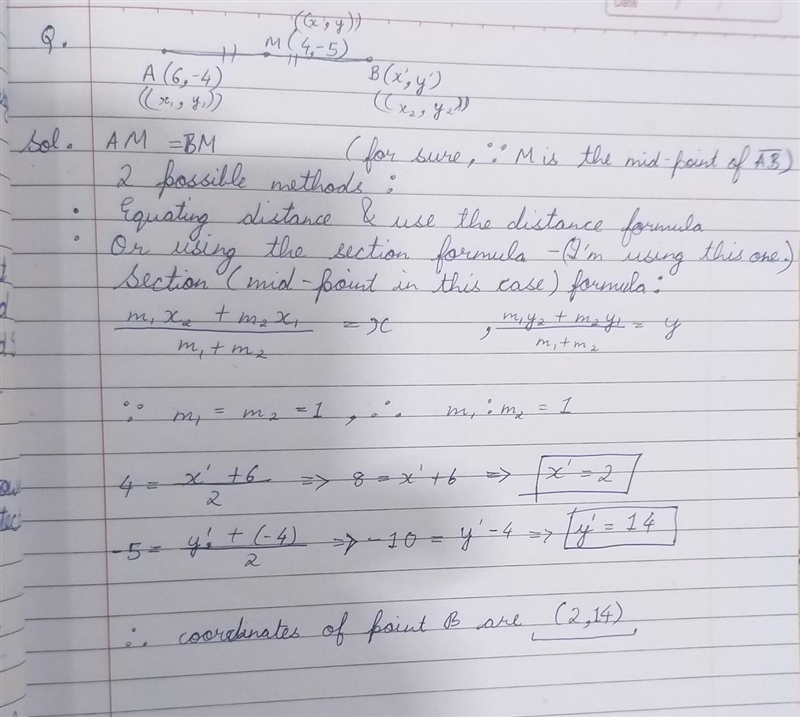 Date
Q.
((x, y))
M(4,-5)
A(6,-4)
B(x', y')
((x₁, y₁))
((x₂, y₂))
Sol. AM = BM (for sure, ∵ M is the mid-point of A̅B̅)
2 possible methods :
• Equating distance & use the distance formula
• Or using the section formula - (I'm using this one.)
Section (mid-point in this case) formula :
(m₁x₂ + m₂x₁)/(m₁ + m₂) = x , (m₁y₂ + m₂y₁)/(m₁+m₂) = y
∵ m₁ = m₂ = 1 , ∴ m₁ : m₂ = 1
4 = (x' + 6)/2 => 8 = x' + 6 => x' = 2
-5 = (y' + (-4))/2 => -10 = y' - 4 => y' = 14
∴ coordanates of point B are (2,14)